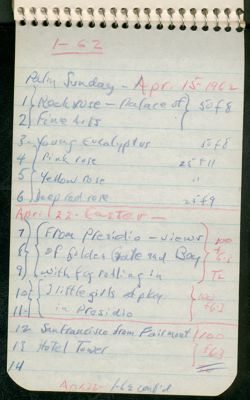 1-62
Palm Sunday - Apr. 15-1962
1 Rockrose - Palace of } 50 f 8
2 Fine Arts
3 - Young Eucalyptus 50 f 8
4 Pink rose 25 f 11
5 Yellow rose "
6 Deep red rose 25 f 9
April 22 - Easter -
7 From Presidio - views } 100
8 of Golden Gate and Bay f 6.3
9 with fog rolling in
10 3 little girls at play } 100
11 - in Presidio f 6.3
12 San Francisco from Fairmont } 100
13 Hotel Tower f 6.3
14
1-62 cont'd